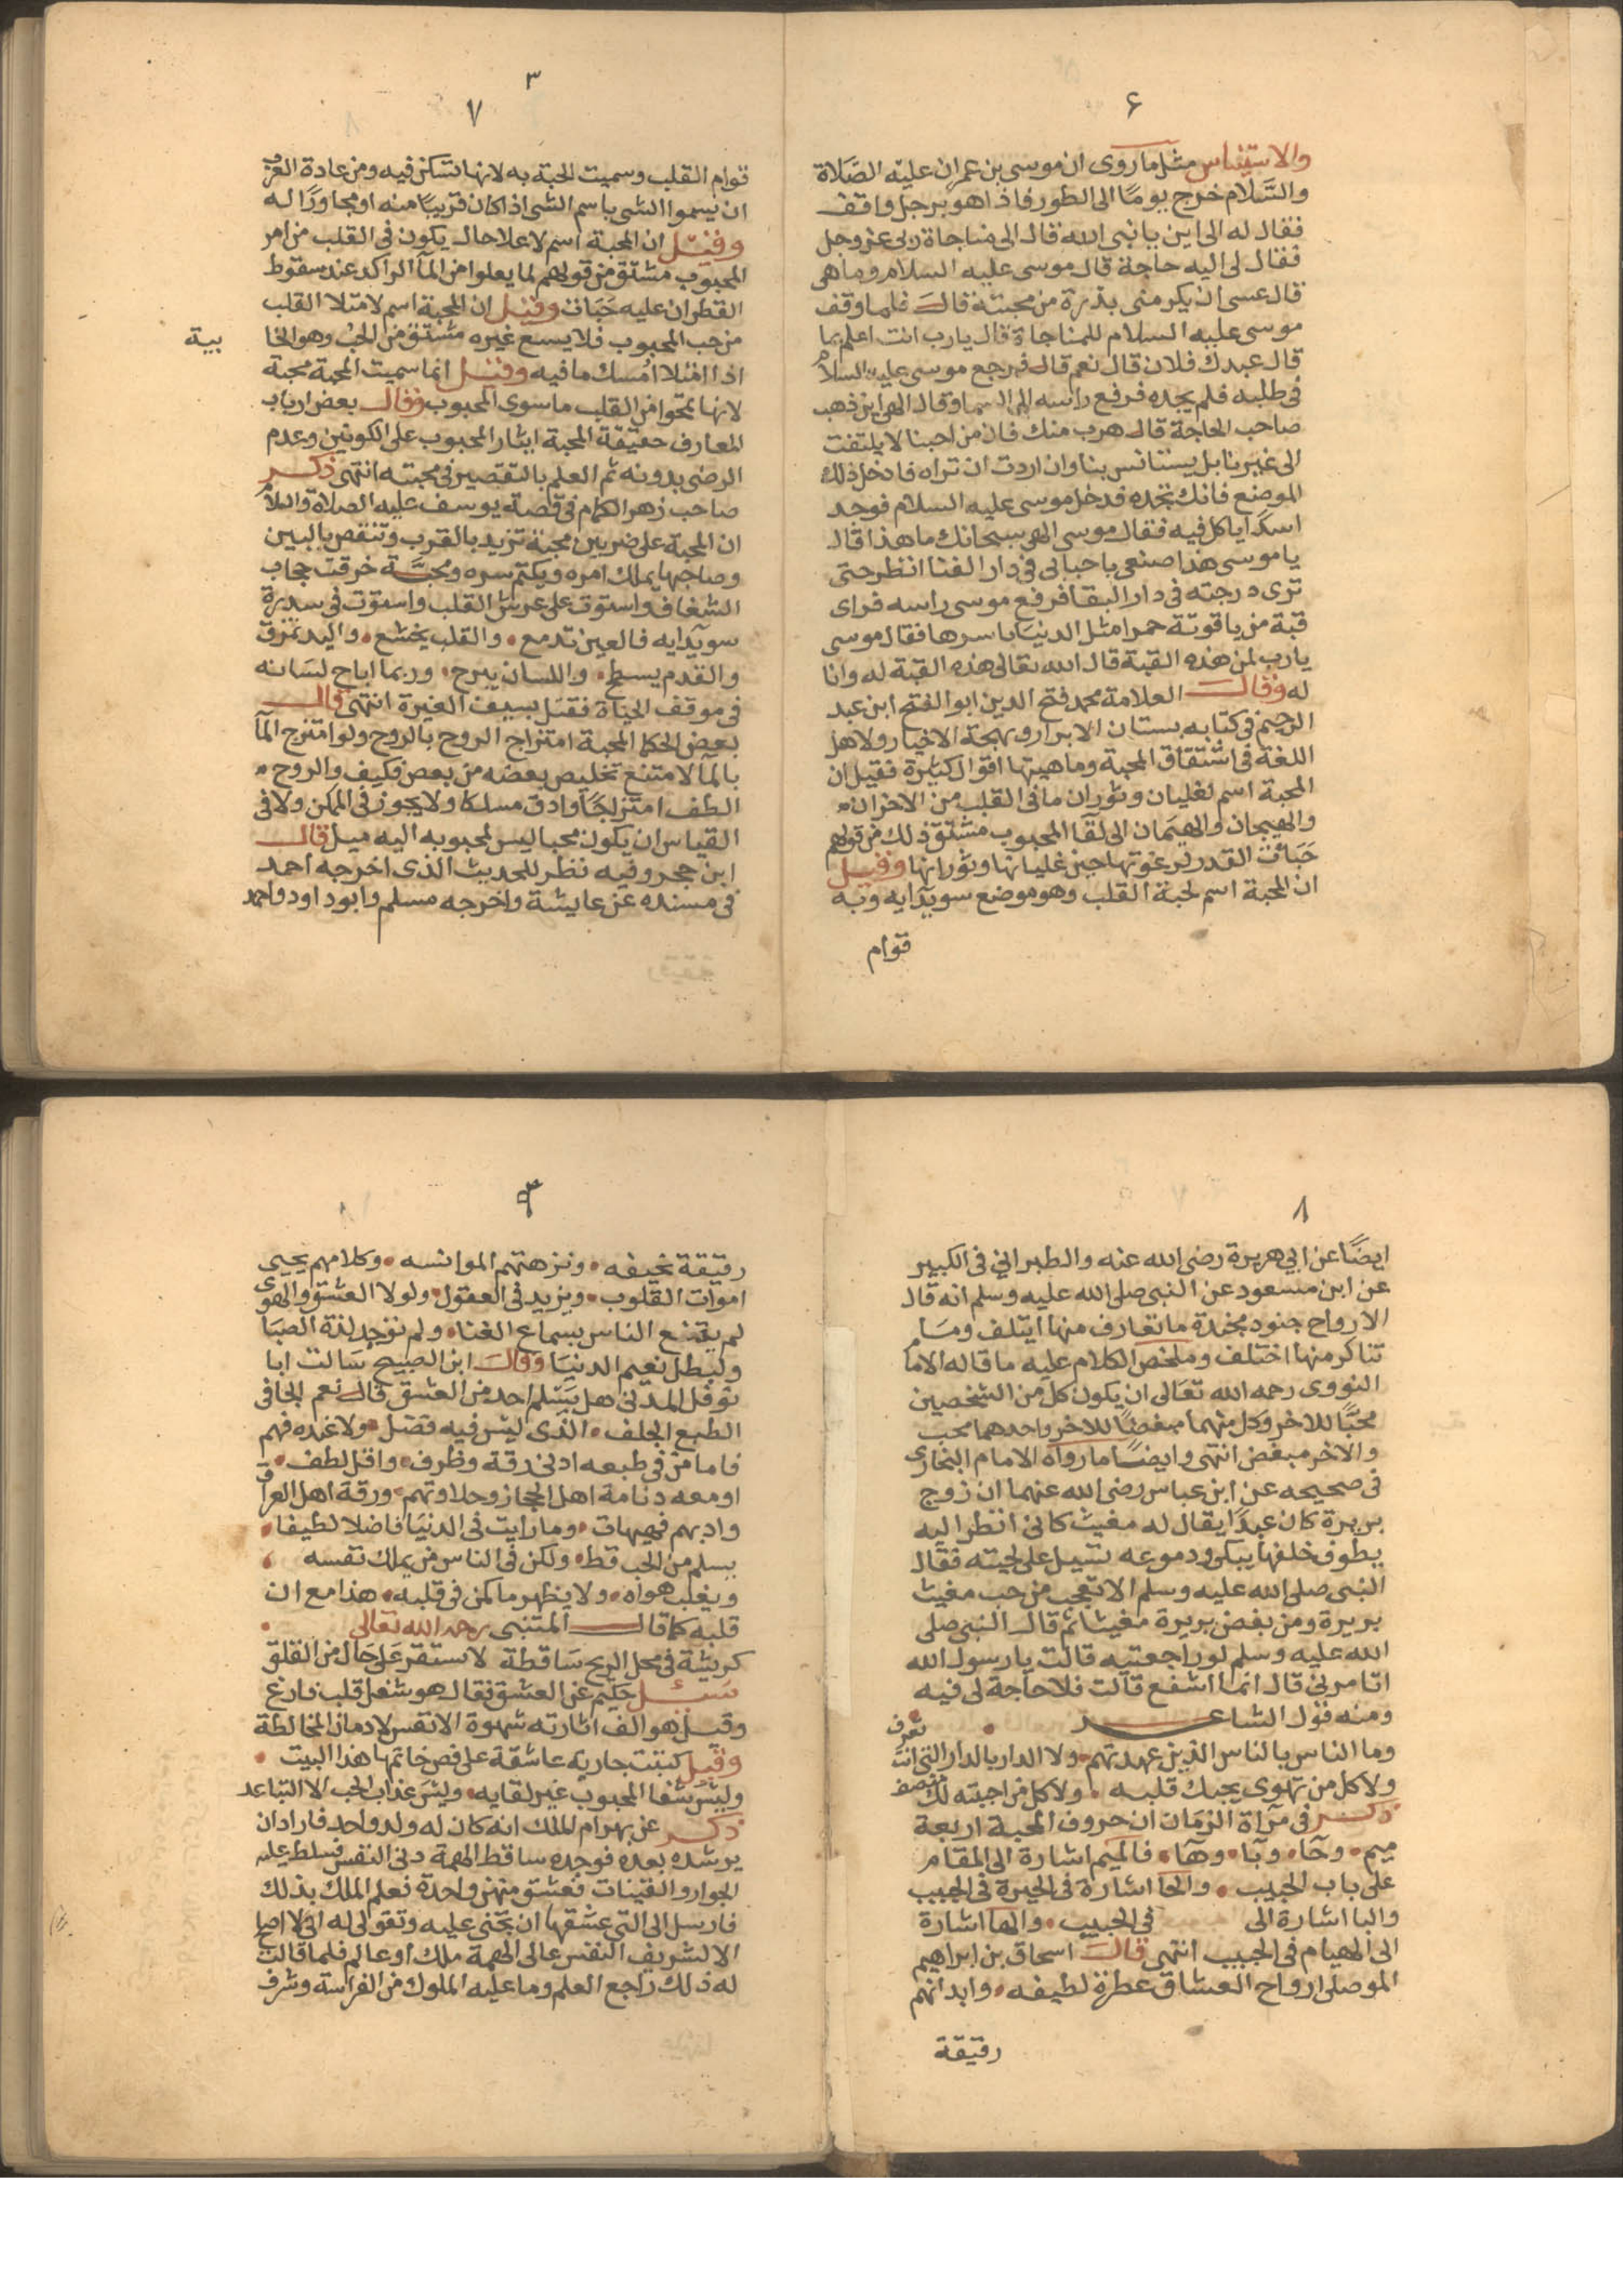 ٦
والاستيناس مثل ما روى ان موسى بن عمران عليه الصلاة
والسلام خرج يومًا الى الطور فاذا هو برجل واقف
فقال له الى اين يا نبى الله قال الى مناجاة ربى عز وجل
فقال لى اليه حاجة قال موسى عليه السلام وما هى
قال عسى ان يكرمنى بذرة من محبته قال فلما وقف
موسى عليه السلام للمناجاة قال يارب انت اعلم بما
قال عبدك فلان قال نعم قال فرجع موسى عليه السلام
فى طلبه فلم يجده فرفع راسه الى السما وقال الهى اين ذهب
صاحب الحاجة قال هرب منك فان من احبنا لا يلتفت
الى غيرنا بل يستانس بنا وان اردت ان تراه فادخل ذلك
الموضع فانك تجده فدخل موسى عليه السلام فوجد
اسدًا ياكل فيه فقال موسى الهى سبحانك ما هذا قال
يا موسى هذا صنعى باحبابى فى دار الفنا انظر حتى
ترى درجته فى دار البقا فرفع موسى راسه فراى
قبة من ياقوتة حمرا مثل الدنيا باسرها فقال موسى
يارب لمن هذه القبة قال الله تعالى هذه القبة له وانا
له وقال العلامة محمد فتح الدين ابو الفتح ابن عبد
الرحيم فى كتابه بستان الابرار وبهجة الاخيار ولاهل
اللغة فى اشتقاق المحبة وماهيتها اقوال كثيرة فقيل ان
المحبة اسم لغليان وثوران ما فى القلب من الاحزان
والهيجان والهيمان الى لقا المحبوب مشتق ذلك من قولهم
حبات القدر لرغوتها حين غليانها وثورانها وقيل
ان المحبة اسم لحبة القلب وهو موضع سويدايه وبه
قوام
٣
٧
قوام القلب وسميت الحبة به لانها تسكن فيه ومن عادة العرب
ان يسموا الشى باسم الشى اذا كان قريبًا منه او مجاورًا له
وقيل ان المحبة اسم لاعلا حال يكون فى القلب من امر
المحبوب مشتق من قولهم لما يعلوا من المآ الراكد عند سقوط
القطران عليه حبات وقيل ان المحبة اسم لامتلا القلب
من حب المحبوب فلا يسع غيره مشتق من الحب وهو الخا
بية
اذا امتلا امسك ما فيه وقيل انما سميت المحبة محبة
لانها تمحوا من القلب ما سوى المحبوب وقال بعض ارباب
المعارف حقيقة المحبة ايثار المحبوب على الكونين وعدم
الرضى بدونه ثم العلم بالتقصير فى محبته انتهى ذكر
صاحب زهر الكمام فى قصة يوسف عليه الصلاة والسلام
ان المحبة على ضربين محبة تزيد بالقرب وتنقص بالبين
وصاحبها يملك امره ويكتم سره ومحبة خرقت حجاب
الشغاف واستوت على عرش القلب واستوت فى سدرة
سويدايه فالعين تدمع والقلب يخشع واليد تمزق
والقدم يسطح واللسان يبرح وربما اباح لسانه
فى موقف الحياة فقتل بسيف الغيرة انتهى قال
بعض الحكما المحبة امتزاج الروح بالروح ولو امتزج المآ
بالمآ لامتنع تخليص بعضه من بعض فكيف والروح
الطف امتزاجًا وادق مسلكا ولا يجوز فى الممكن ولا فى
القياس ان يكون محبا ليس لمحبوبه اليه ميل قال
ابن حجر وفيه نظر للحديث الذى اخرجه احمد
فى مسنده عن عايشة واخرجه مسلم وابو داود واحمد
٨
ايضًا عن ابي هريرة رضى الله عنه والطبراني فى الكبير
عن ابن مسعود عن النبى صلى الله عليه وسلم انه قال
الارواح جنود مجندة ما تعارف منها ايتلف وما
تناكر منها اختلف وملخص الكلام عليه ما قاله الاما
النووى رحمه الله تعالى ان يكون كل من الشخصين
محبًا للاخر وكل منهما مبغضًا للاخر واحدهما محب
والاخر مبغض انتهى وايضا ما رواه الامام البخارى
فى صحيحه عن ابن عباس رضى الله عنهما ان زوج
بريرة كان عبدًا يقال له مغيث كانى انظر اليه
يطوف خلفها يبكى ودموعه تسيل على لحيته فقال
النبى صلى الله عليه وسلم الا تعجب من حب مغيث
بريرة ومن بغض بريرة مغيثا ثم قال النبى صلى
الله عليه وسلم لو راجعتيه قالت يا رسول الله
اتامرنى قال انما اشفع قالت فلا حاجة لى فيه
ومنه قول الشاعر
وما الناس بالناس الذين عهدتهم ولا الدار بالدار التى انت تعرف
ولا كل من تهوى يحبك قلبه ولا كل من احببته لك منصف
ذكر فى مرآة الزمان ان حروف المحبة اربعة
ميم وحآ وبآ وهآ فالميم اشارة الى المقام
على باب الحبيب والحآ اشارة فى الحيرة فى الحبيب
والبا اشارة الى فى الحبيب والها اشارة
الى الهيام فى الحبيب انتهى قال اسحاق بن ابراهيم
الموصلى ارواح العشاق عطرة لطيفه وابدانهم
رقيقة
رقيقة نحيفه ونزهتهم الموانسه وكلامهم يحيى
اموات القلوب ويزيد فى العقول ولولا العشق والهوى
لم يقتنع الناس بسماع الغنا ولم توجد لذة الصبا
ولبطل نعيم الدنيا وقال ابن الصبيح سالت ابا
نوفل المدنى هل يسلم احد من العشق قال نعم الجافى
الطبع الجلف الذى ليس فيه فضل ولا عنده فهم
فاما من فى طبعه ادنى رقة وظرف واقل لطف
او معه دنامة اهل الحجاز وحلاوتهم ورقة اهل العراق
وادبهم فهيهات وما رايت فى الدنيا فاضلا لطيفا
يسلم من الحب قط ولكن فى الناس من يملك نفسه
ويغلب هواه ولا يظهر ما كمن فى قلبه هذا مع ان
قلبه كما قال المتنبى رحمه الله تعالى
كريشة فى محل الريح ساقطة لا تستقر على حال من القلق
سئل حكيم عن العشق فقال هو شغل قلب فارغ
وقيل هو الف اثارته شهوة الانفس لادمان المخالطة
وقيل كتبت جارية عاشقة على فص خاتمها هذا البيت
وليس شفا المحبوب غير لقايه وليس عذاب الحب الا التباعد
ذكر عن بهرام الملك انه كان له ولد واحد فاراد ان
يرشده بعده فوجده ساقط الهمة دنى النفس فسلط عليه
الجوار والقينات فعشق منهن واحدة فعلم الملك بذلك
فارسل الى التى عشقها ان تجنى عليه وتقولى له انى لا اصلح
الا لشريف النفس عالى الهمة ملك او عالم فلما قالت
له ذلك راجع العلم وما عليه الملوك من الفراسة وشرف